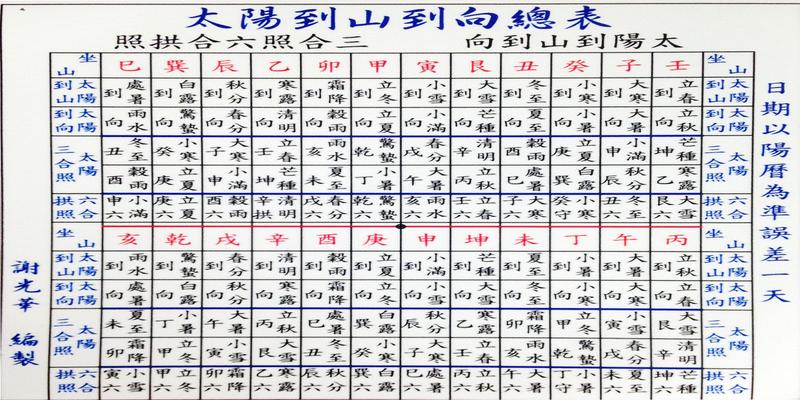 太陽到山到向總表
太陽到山到向 三合照六合拱照
日期以陽曆為準誤差一天
坐山 壬 子 癸 丑 艮 寅 甲 卯 乙 辰 巽 巳 坐山
太陽到山 立春到 大寒到 小寒到 冬至到 大雪到 小雪到 立冬到 霜降到 寒露到 秋分到 白露到 處暑到 太陽到山
太陽到向 立秋向 大暑向 小暑向 夏至向 芒種向 小滿向 立夏向 穀雨向 清明向 春分向 驚蟄向 雨水向 太陽到向
太陽三合照 芒種坤 小滿申 立夏庚 穀雨酉 清明辛 春分戌 驚蟄乾 雨水亥 立春壬 大寒子 小寒癸 冬至丑 太陽三合照
寒露乙 秋分辰 白露巽 處暑巳 立秋丙 大暑午 小暑丁 夏至未 芒種坤 小滿申 立夏庚 穀雨酉
六合拱照 大雪艮六 冬至丑六 小寒癸守 大寒子六 立春壬六 雨水亥六 驚蟄乾六 春分戌六 清明辛拱 穀雨酉六 立夏庚六 小滿申六 六合拱照
坐山 丙 午 丁 未 坤 申 庚 酉 辛 戌 乾 亥 坐山
太陽到山 立秋到 大暑到 小暑到 夏至到 芒種到 小滿到 立夏到 穀雨到 清明到 春分到 驚蟄到 雨水到 太陽到山
太陽到向 立春向 大寒向 小寒向 冬至向 大雪向 小雪向 立冬向 霜降向 寒露向 秋分向 白露向 處暑向 太陽到向
太陽三合照 大雪艮 小雪寅 立冬甲 霜降卯 寒露乙 秋分辰 白露巽 處暑巳 立秋丙 大暑午 小暑丁 夏至未 太陽三合照
清明辛 春分戌 驚蟄乾 雨水亥 立春壬 大寒子 小寒癸 冬至丑 大雪艮 小雪寅 立冬甲 霜降卯
六合拱照 芒種坤六 夏至未六 小暑丁守 大暑午六 立秋丙六 處暑巳六 白露巽六 秋分辰六 寒露乙六 霜降卯六 立冬甲六 小雪寅六 六合拱照
謝光華 編製